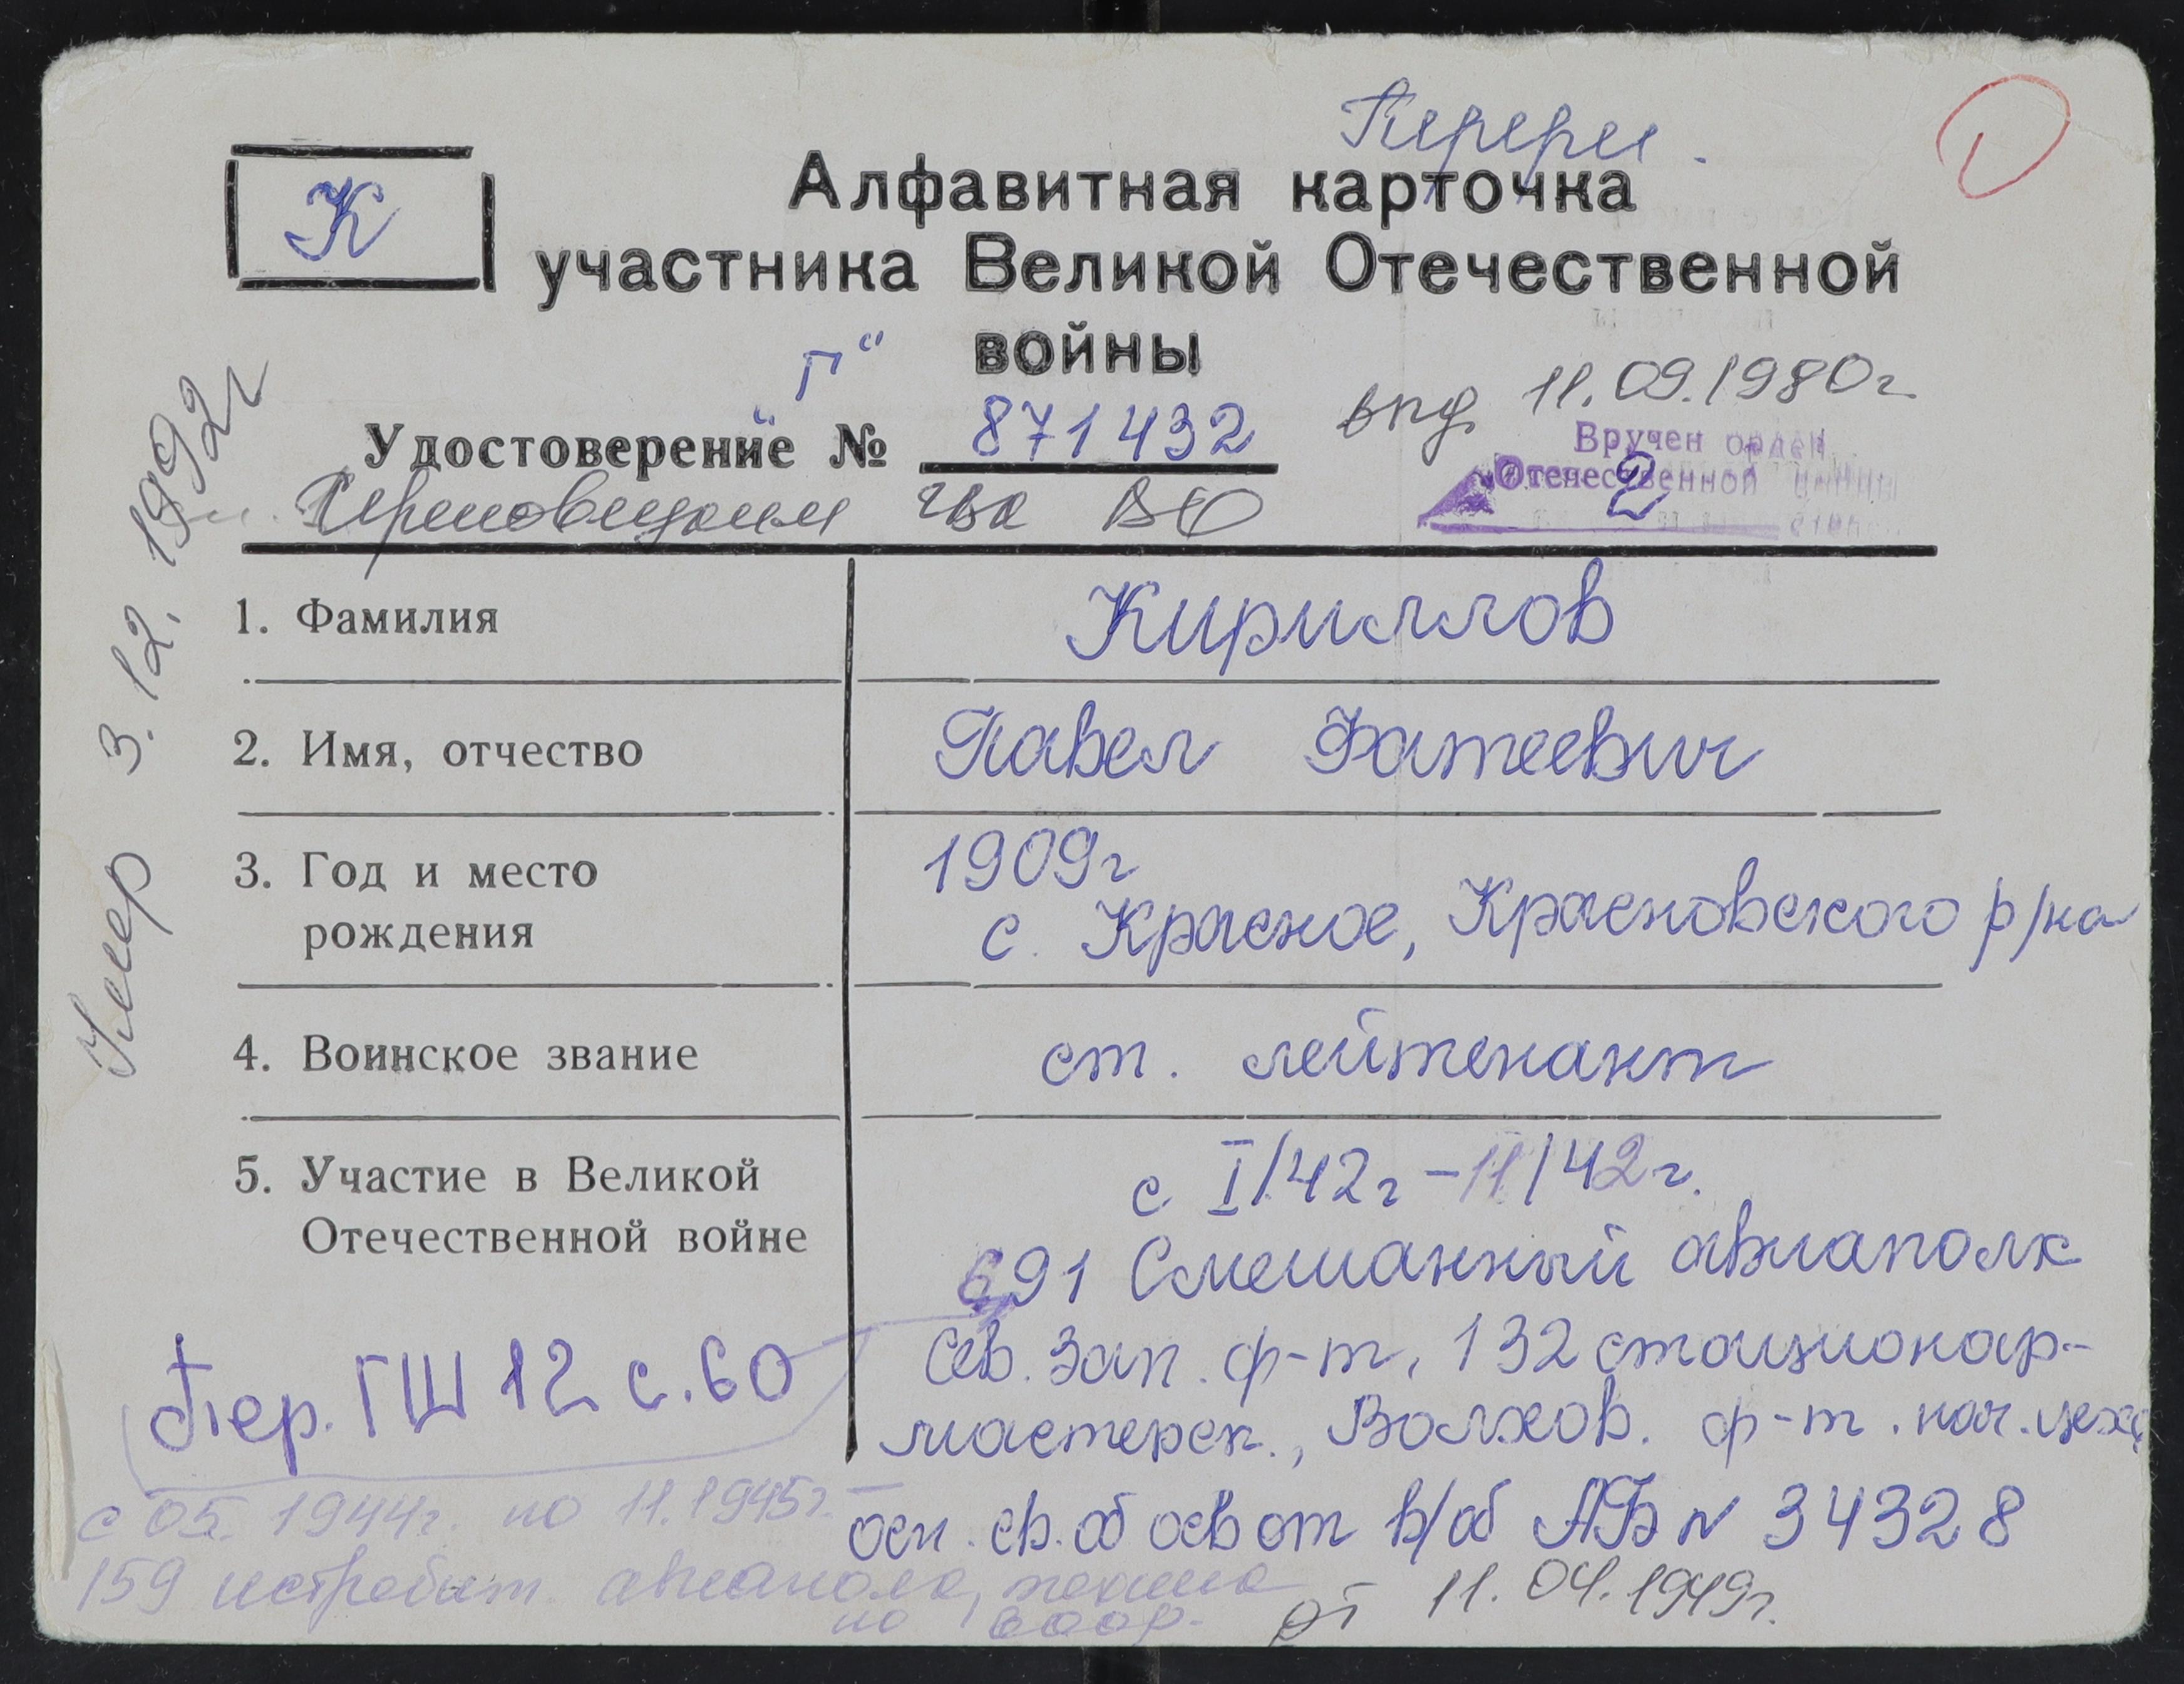 Перерег.
К
Алфавитная карточка
участника Великой Отечественной
войны
„Г“
Удостоверение № 871432
выд. 11.09.1980г.
Вручен орден
Отечественной
2
ВО
1. Фамилия
Кириллов
2. Имя, отчество
Павел Фатеевич
3. Год и место
рождения
1909г
с. Красное, Красновского р/на
4. Воинское звание
ст. лейтенант
5. Участие в Великой
Отечественной войне
с I/42г - 11/42г.
691 Смешанный авиаполк
Сев. Зап. ф-т, 132 стационар-
мастерск., Волхов. ф-т. нач. цеха
осн. св. об осв от в/об АБ N 34328
от 11.04.1949г.
Пер. ГШ 12 с. 60
с 05. 1944г. по 11.1945г. -
159 истребит. авиаполк, техник
по воор.
Умер 3. 12. 1992г